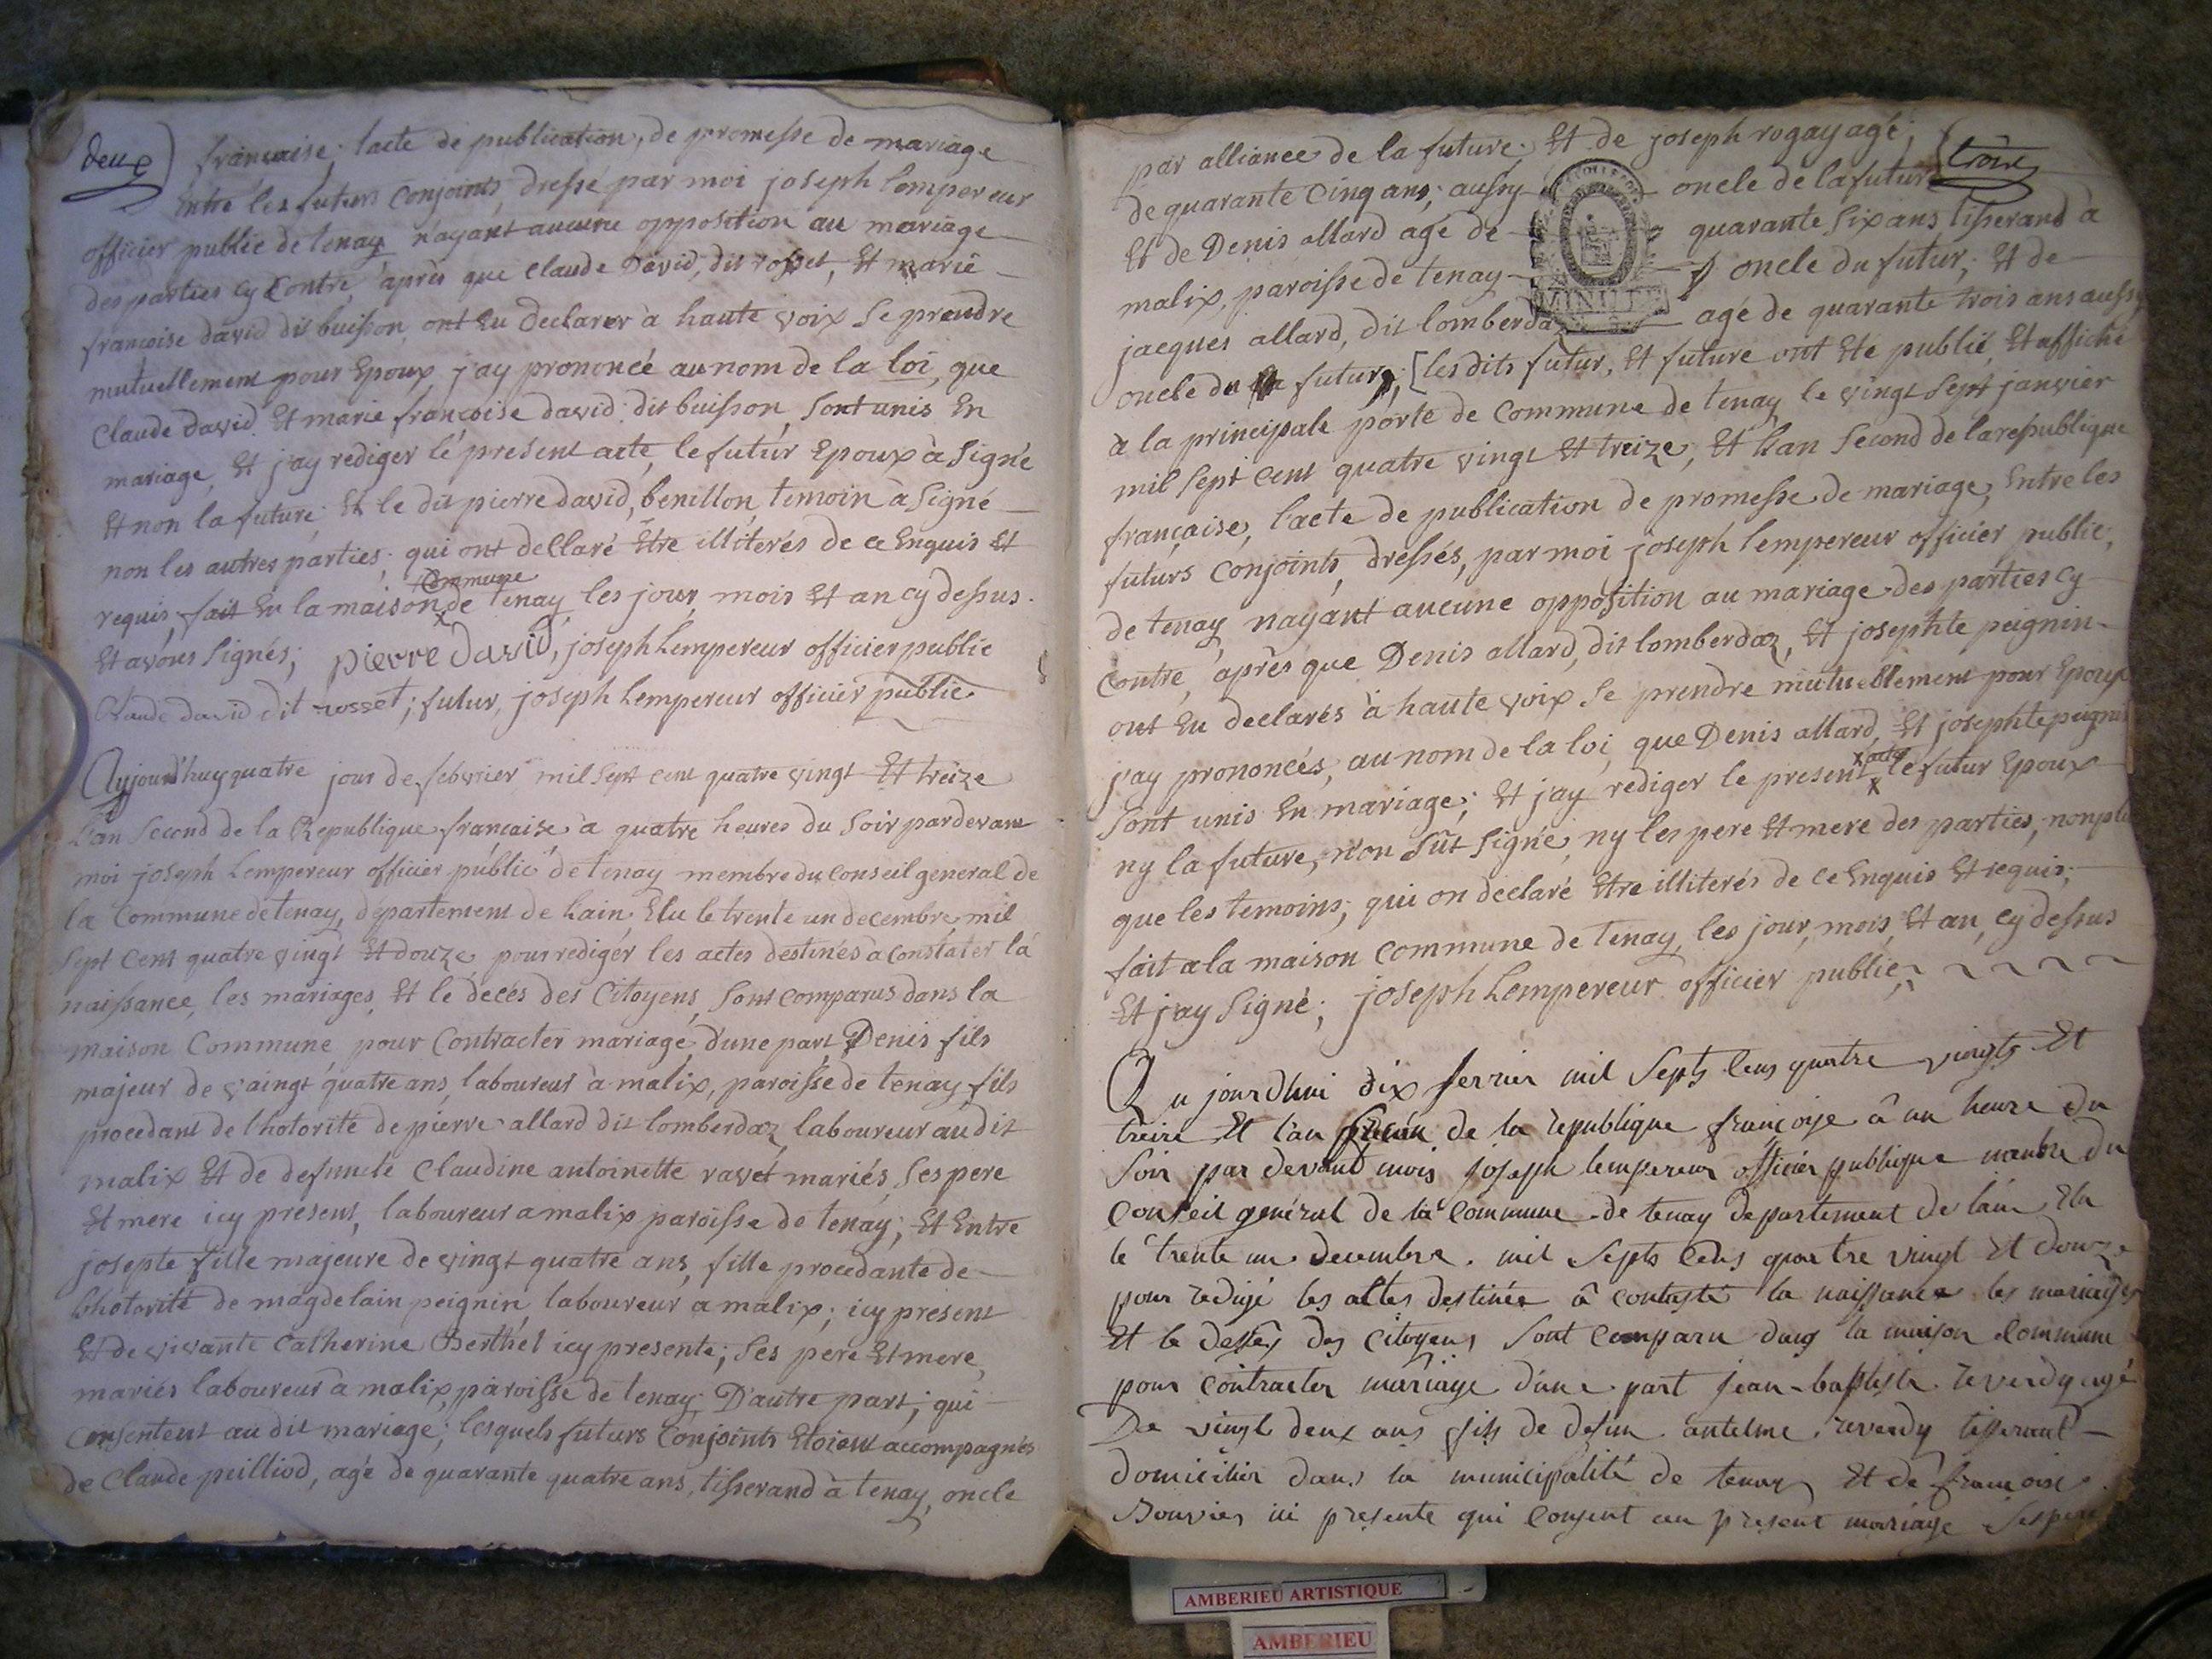 deux
française; lacte de publication, de promesse de mariage
Entre les futurs Conjoints, dressé par moi joseph lempereur
officier public de tenay n'ayant aucune opposition au mariage
des parties cy Contre, après que Claude David, dit rosset, Et marie
francoise david dit buisson ont Eu declarer à haute voix Se prendre
mutuellement pour Epoux, j'ay prononcé au nom de la loi, que
Claude david Et marie françoise david dit buisson, Sont unis En
mariage, Et j'ay rediger le present acte, le futur Epoux à Signé
Et non la future; Et le dit pierre david, benillon, temoin à Signé
non les autres parties, qui ont dellaré Etre illiterés de ce Enquis Et
Commune
requis, fait En la maison de tenay, les jour, mois Et an cy dessus.
Et avons Signés; pierre David, joseph Lempereur officier public
Claude david dit rosset; futur, joseph Lempereur officier public
Aujourd'huy quatre jour de febvrier mil Sept cent quatre vingt Et treize
L'an Second de la Republique française à quatre heures du Soir pardevant
moi joseph Lempereur officier public de tenay membre du Conseil general de
la Commune de tenay, département de Lain, Elu le trente un decembre, mil
Sept Cent quatre vingt Et douze pour rediger les actes destinés à Constater la
naissance, les mariages, Et le decés des Citoyens, Sont comparus dans la
maison Commune pour Contracter mariage, d'une part, Denis fils
majeur de vaingt quatre ans, laboureur à malix, paroisse de tenay, fils
procedant de l'hotorité de pierre allard dit lomberdaz laboureur au dit
malix Et de defuncte Claudine antoinette ravet mariés, Ses pere
Et mere icy present, laboureur a malix paroisse de tenay; Et Entre
josepte fille majeure de vingt quatre ans, fille procedante de
Lhotorité de magdelain peignin laboureur a malix; icy present
Et de vivante Catherine Berthet icy presente; Ses pere Et mere
mariés laboureur à malix, paroisse de tenay; D'autre part; qui
Consentent au dit mariage; lesquels futurs Conjoints Etoient accompagnés
de Claude peilliod, agé de quarante quatre ans, tisserand à tenay, oncle
par alliance de la future; Et de joseph rogay agé;
troix
de quarante Cinq ans; aussy oncle de la future
Et de Denis allard agé de quarante Six ans tisserand à
malix, paroisse de tenay oncle du futur; Et de
MINUTE
jacques allard, dit lomberdaz agé de quarante trois ans aussy
oncle du futur; [les dits futur, Et future ont Eté publié, Et affiché
à la principale porte de Commune de tenay, le vingt Sept janvier
mil Sept Cent quatre vingt Et treize; Et Lan Second de la respublique
française, l'acte de publication de promesse de mariage, Entre les
futurs Conjoints, dressés, par moi joseph lempereur officier public,
de tenay, nayant aucune opposition au mariage des parties cy
Contre, après que Denis allard, dit lomberdaz, Et josephte peignin
ont Eu declarés à haute voix Se prendre mutuellement pour Epoux
j'ay prononcés, au nom de la loi, que Denis allard, Et josephte peignin
acte
Sont unis En mariage; Et j'ay rediger le present le futur Epoux
ny la future, n'on Sût Signé, ny les pere Et mere des parties, non plus
que les temoins; qui on declaré Etre illiterés de ce Enquis Et requis;
fait a la maison Commune de tenay, les jour, mois, Et an, cy dessus
Et j'ay Signé; joseph Lempereur officier public
Au jourdhui dix fevrier mil Septs Cens quatre vingts Et
treize Et l'an de la republique françoise â un heure du
Soir par devant mois joseph lempereur officier publique membre du
Conseil genéral de la Commune de tenay departement de lain Elu
le trente un decembre. mil Septs Cens quattre vingt Et douze
pour redigé les actes destinée â contasté la naissance les mariages
Et le dessés des Citoyens Sont Comparu dans la maison Commune
pour Contracter mariage d'une part jean-baptiste reverdy agé
De vingt deux ans fils de defun antelme reverdy tisserant
domicilier dans la municipalité de tenay Et de francoise
Bouvier ici presente qui Consent au present mariage Ses pere
AMBERIEU ARTISTIQUE
AMBERIEU